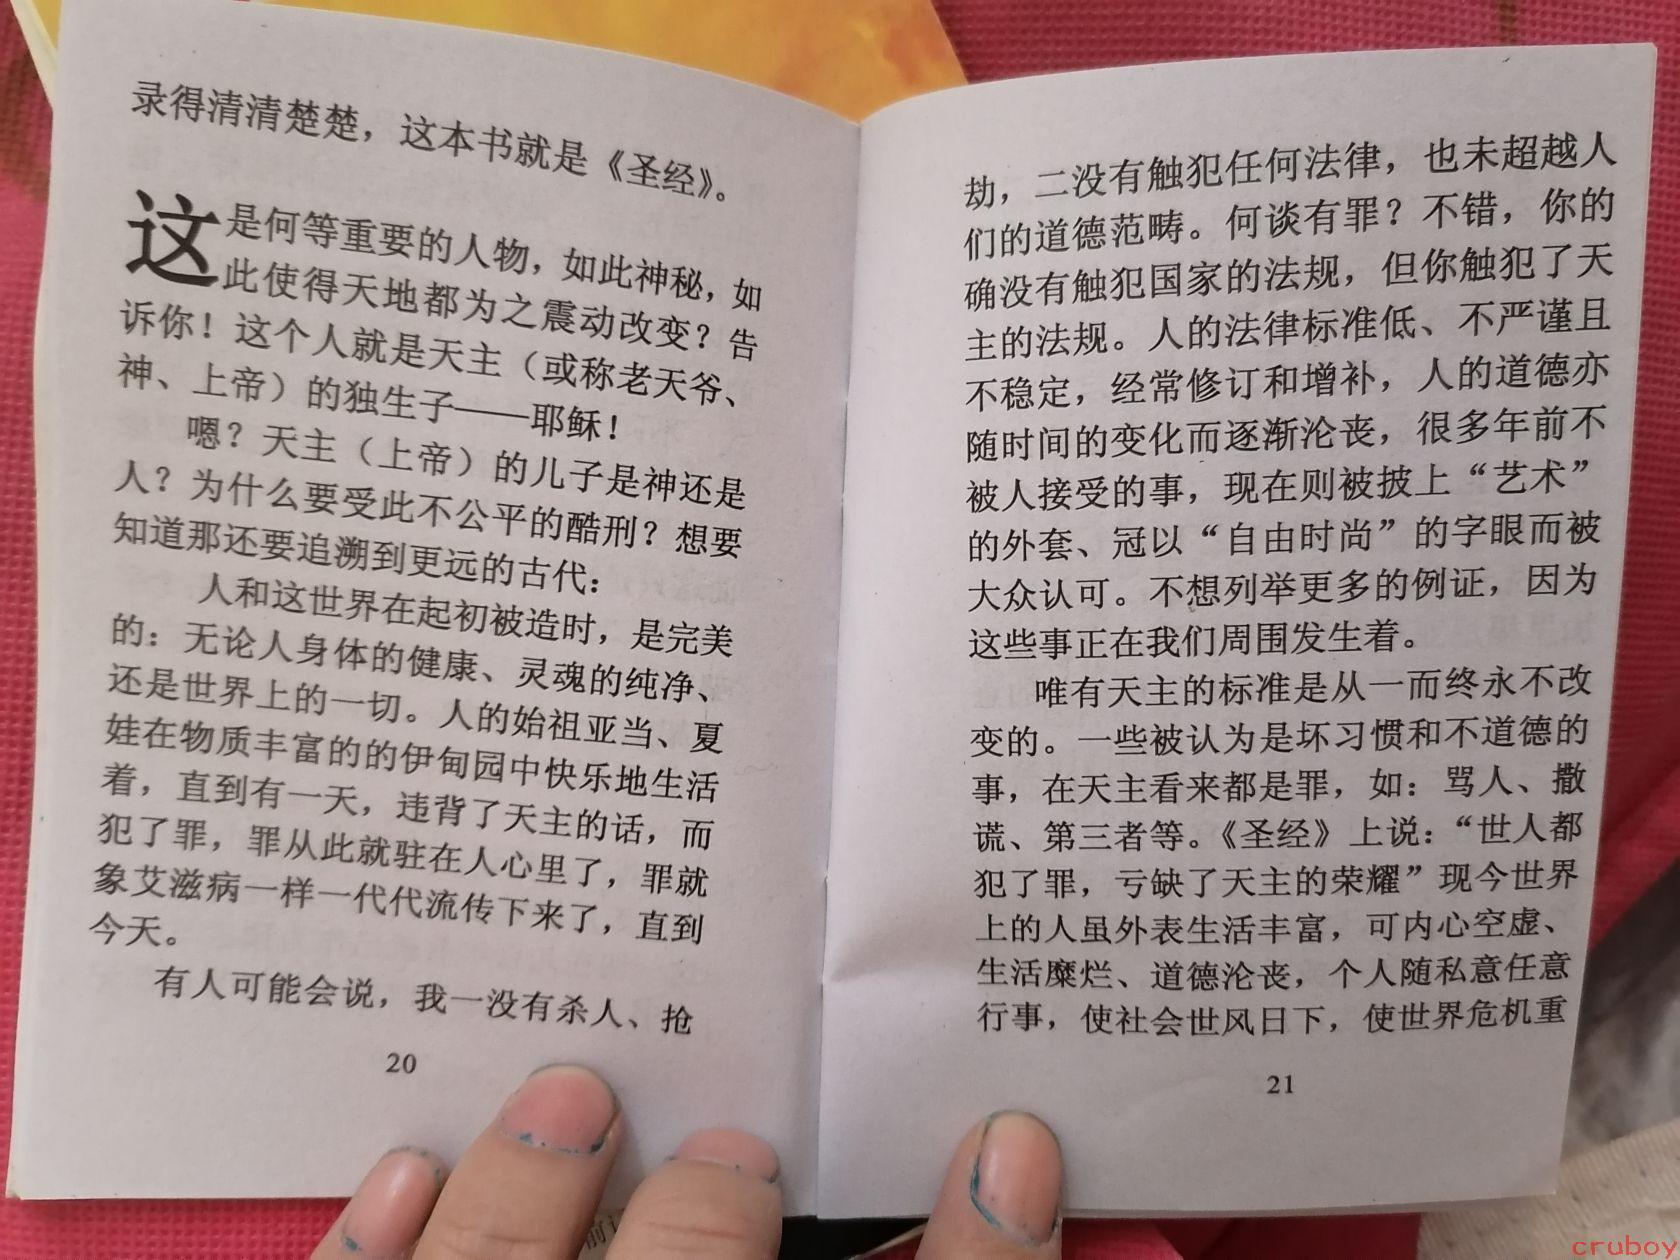 录得清清楚楚，这本书就是《圣经》。
这是何等重要的人物，如此神秘，如
此使得天地都为之震动改变？告
诉你！这个人就是天主（或称老天爷、
神、上帝）的独生子——耶稣！
嗯？天主（上帝）的儿子是神还是
人？为什么要受此不公平的酷刑？想要
知道那还要追溯到更远的古代：
人和这世界在起初被造时，是完美
的：无论人身体的健康、灵魂的纯净、
还是世界上的一切。人的始祖亚当、夏
娃在物质丰富的的伊甸园中快乐地生活
着，直到有一天，违背了天主的话，而
犯了罪，罪从此就驻在人心里了，罪就
象艾滋病一样一代代流传下来了，直到
今天。
有人可能会说，我一没有杀人、抢
20
劫，二没有触犯任何法律，也未超越人
们的道德范畴。何谈有罪？不错，你的
确没有触犯国家的法规，但你触犯了天
主的法规。人的法律标准低、不严谨且
不稳定，经常修订和增补，人的道德亦
随时间的变化而逐渐沦丧，很多年前不
被人接受的事，现在则被披上“艺术”
的外套、冠以“自由时尚”的字眼而被
大众认可。不想列举更多的例证，因为
这些事正在我们周围发生着。
唯有天主的标准是从一而终永不改
变的。一些被认为是坏习惯和不道德的
事，在天主看来都是罪，如：骂人、撒
谎、第三者等。《圣经》上说：“世人都
犯了罪，亏缺了天主的荣耀”现今世界
上的人虽外表生活丰富，可内心空虚、
生活糜烂、道德沦丧，个人随私意任意
行事，使社会世风日下，使世界危机重
21
cruboy